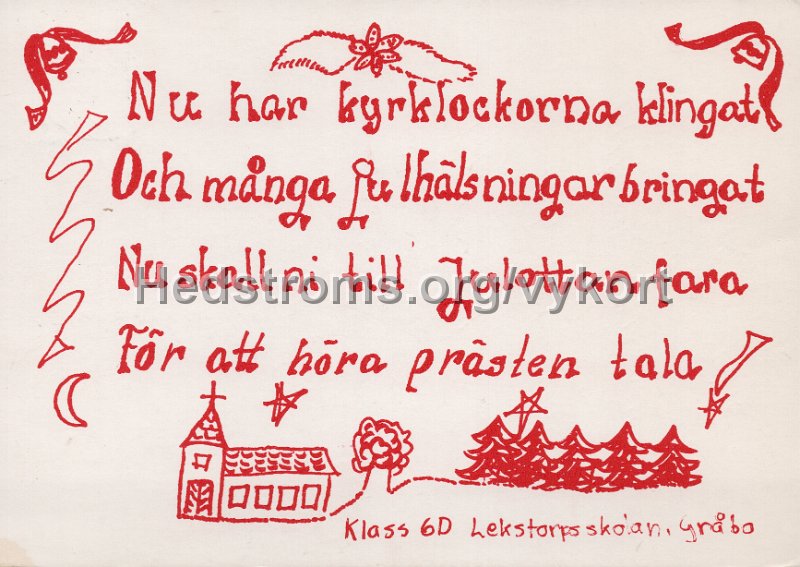 Nu har kyrklockorna klingat
Och många julhälsningar bringat
Nu skall ni till Julottan fara
Hedstroms.org/vykort
För att höra prästen tala
Klass 6D Lekstorpsskolan, Gråbo